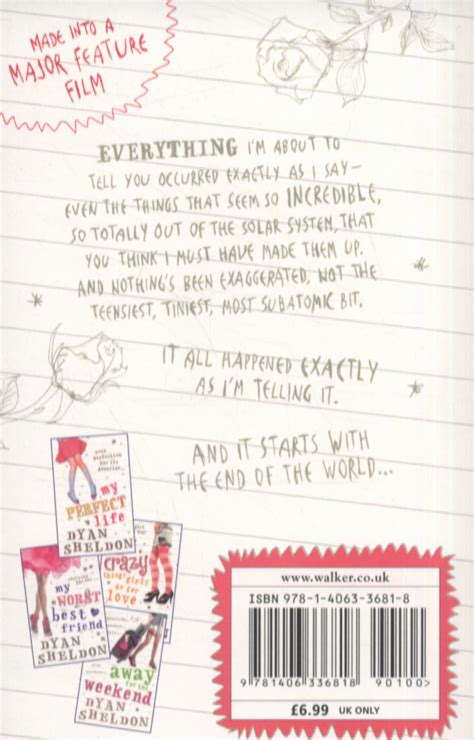 MADE INTO A
MAJOR FEATURE
FILM
EVERYTHING I'M ABOUT TO
TELL YOU OCCURRED EXACTLY AS I SAY–
EVEN THE THINGS THAT SEEM SO INCREDIBLE,
SO TOTALLY OUT OF THE SOLAR SYSTEM, THAT
YOU THINK I MUST HAVE MADE THEM UP.
AND NOTHING'S BEEN EXAGGERATED, NOT THE
TEENSIEST, TINIEST, MOST SUBATOMIC BIT.
IT ALL HAPPENED EXACTLY
AS I'M TELLING IT.
AND IT STARTS WITH
THE END OF THE WORLD...
my
PERFECT
life
DYAN SHELDON
crazy
things girls
do for
love
my
WORST
best
friend
DYAN
SHELDON
away
for the
weekend
DYAN
SHELDON
www.walker.co.uk
ISBN 978-1-4063-3681-8
9 781406 336818 90100>
£6.99 UK ONLY